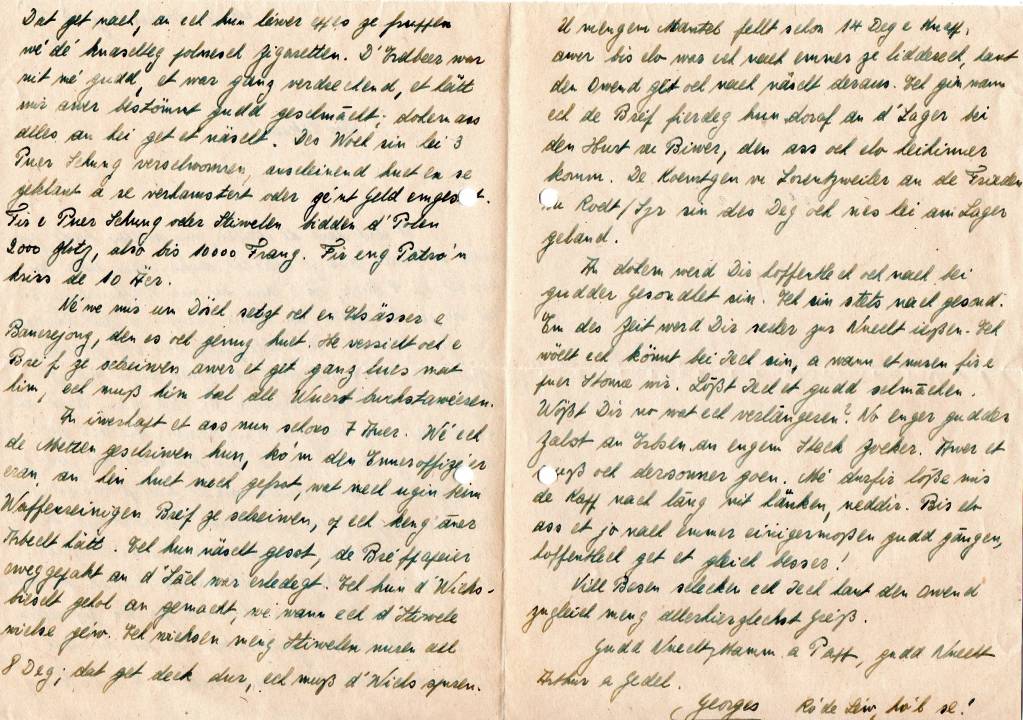 Dat get nach, an ech hun léwer eppes ze fruppen
wé dé knaschteg polnesch Zigaretten. D'Erdbeer war
nit mé gudd, et war ganz verdrechend, et hätt
mir awer bestëmmt gudd geschmácht; dohem ass
alles an hei get et näscht. Des Woch sin hei 3
Puer Schung verschwonnen, anscheinend huet en se
geklaut a se verhamstert oder gént Geld emgetos
Fir e Puer Schung oder Stiwelen bidden d'Polen
2000 Zloty, also bis 10000 Frang. Fir eng Patro'n
kriss de 10 Eer.
Néwe mir um Dësch setzt och en Elsässer e
Bauerejong, den es och genug huet. He versicht och e
Bréf ze schreiwen awer et get ganz lues mat
him, ech muß him bal all Wuert buchstawéieren.
An iwerhapt et ass nun schons 7 Auer. Wé ech
de Metten geschriwen hun, ko'm den Enneroffizéier
eran, an hien huet mech gefrot, wat mech ugin beim
Waffenreinigen Bréf ze schreiwen, op ech keng aner
Arbecht hätt. Ech hun näscht gesot, de Bréfpapeier
eweggepakt an d'Sach war erledegt. Ech hun d'Wichs-
biescht geholl an gemacht, wé wann ech d'Stiwele
wichse géw. Ech wichsen meng Stiwelen nuren all
8 Deg; dat get deck dur, ech muß d'Wichs spuren.
U mengem Mantel fellt schon 14 Deg e Knapp,
awer bis elo war ech nach emmer ze lidderech, haut
den Owend get och nach näischt deraus. Ech gin wann
ech de Bréf fierdeg hun doraf an d'Lager bei
den Hurt vu Biwer, den ass och elo heihinner
komm. De Koenstgen vu Lorentzweiler an de Frieden
vu Rodt/Syr sin des Deg och vis hei am Lager
geland.
An dohem werd Dir hoffentlech och nach bei
gudder Gesondhet sin. Ech sin stets nach gesond.
Em des Zeit werd Dir secher zur Nuecht ießen. Ech
wéilt ech kënnt bei Iech sin, a wann et nuren fir e
puer Stonn wir. Lößt Iech et gudd schmáchen.
Wößt Dir no wat ech verlängeren? No enger gudder
Zalot an Ierbsen an engem Steck Zocker. Awer et
muß och dersonner goen. Mé durfir lößе mir
de Kapp nach lang nit hänken, neddir. Bis elo
ass et jo nach emmer einigermoßen gudd gangen,
hoffentlech get et gleich besser!
Vill Besen schecken ech Iech haut den Owend
zugleich meng allerhierzlechst Gréiß.
Gudd Nuecht, Mamm a Papp, gudd Nuecht
Arthur a Gedel.
Georges Ro'de Léiw ho'l se!